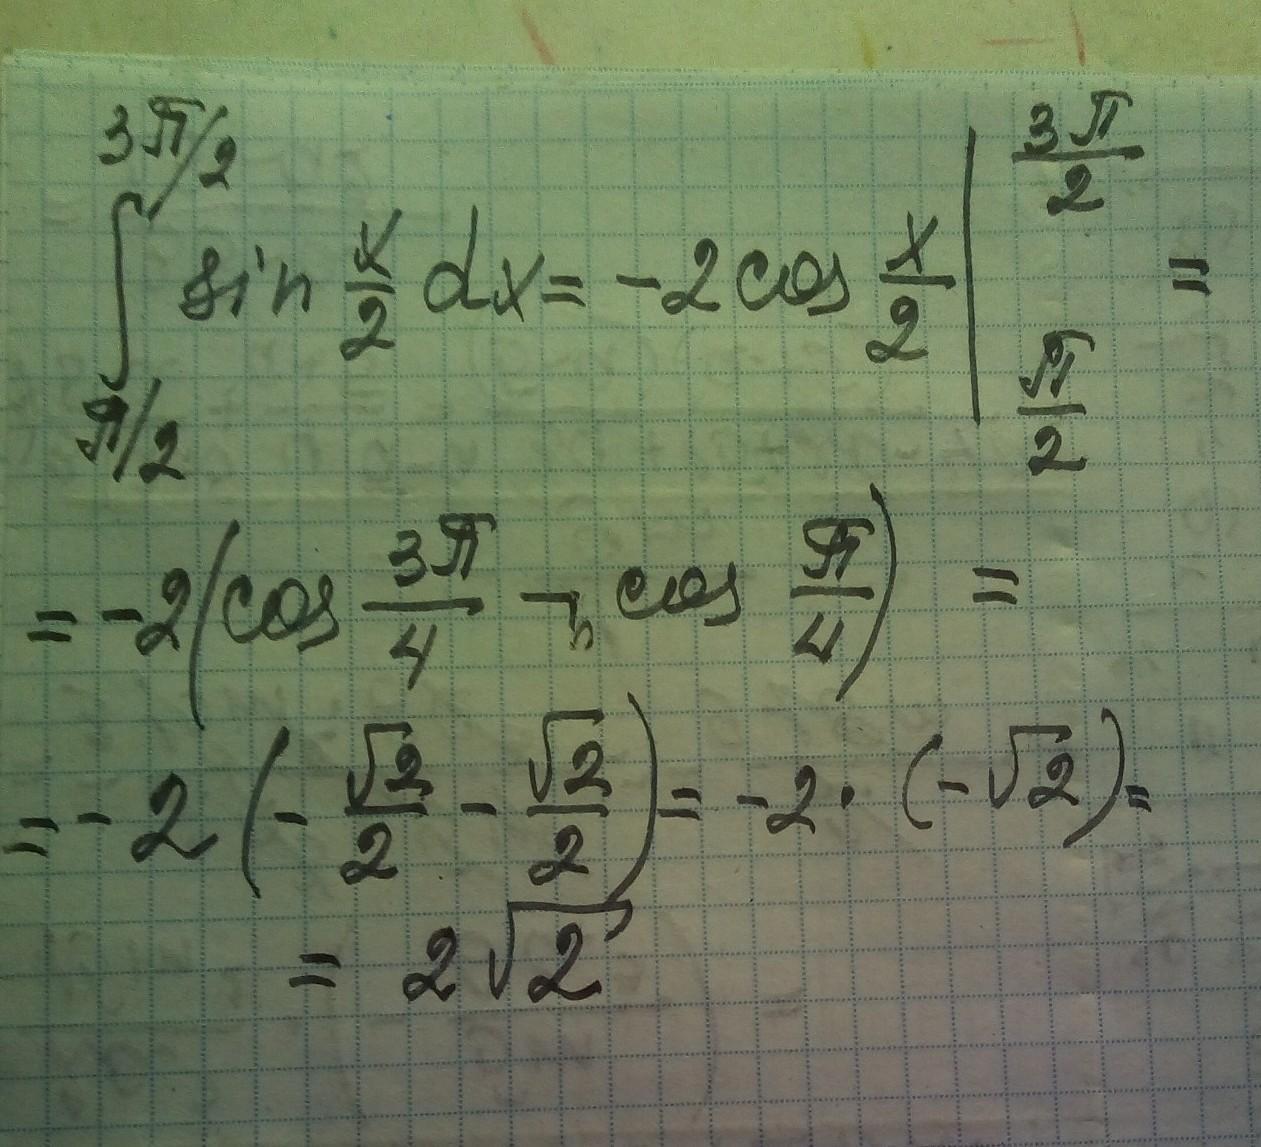 ∫_{π/2}^{3π/2} sin x/2 dx = -2 cos x/2 |_{π/2}^{3π/2} =
= -2(cos 3π/4 - cos π/4) =
= -2(-√2/2 - √2/2) = -2 · (-√2) =
= 2√2